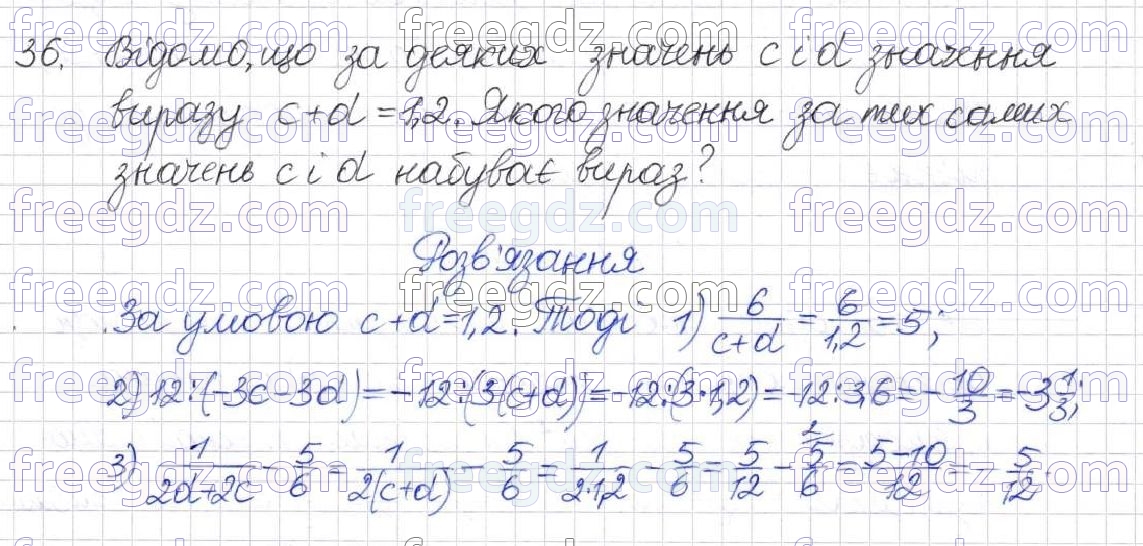 36. Відомо, що за деяких значень c і d значення
виразу c+d=1,2. Якого значення за тих самих
значень c і d набуває вираз?
Розв'язання
За умовою c+d=1,2. Тоді 1) 6/(c+d) = 6/1,2 = 5;
2) 12:(-3c-3d) = -12:(3(c+d)) = -12:(3·1,2) = -12:3,6 = -10/3 = -3 1/3;
3) 1/(2d+2c) - 5/6 = 1/(2(c+d)) - 5/6 = 1/(2·1,2) - 5/6 = 5/12 - 5/6 = (5-10)/12 = -5/12
freegdz.com